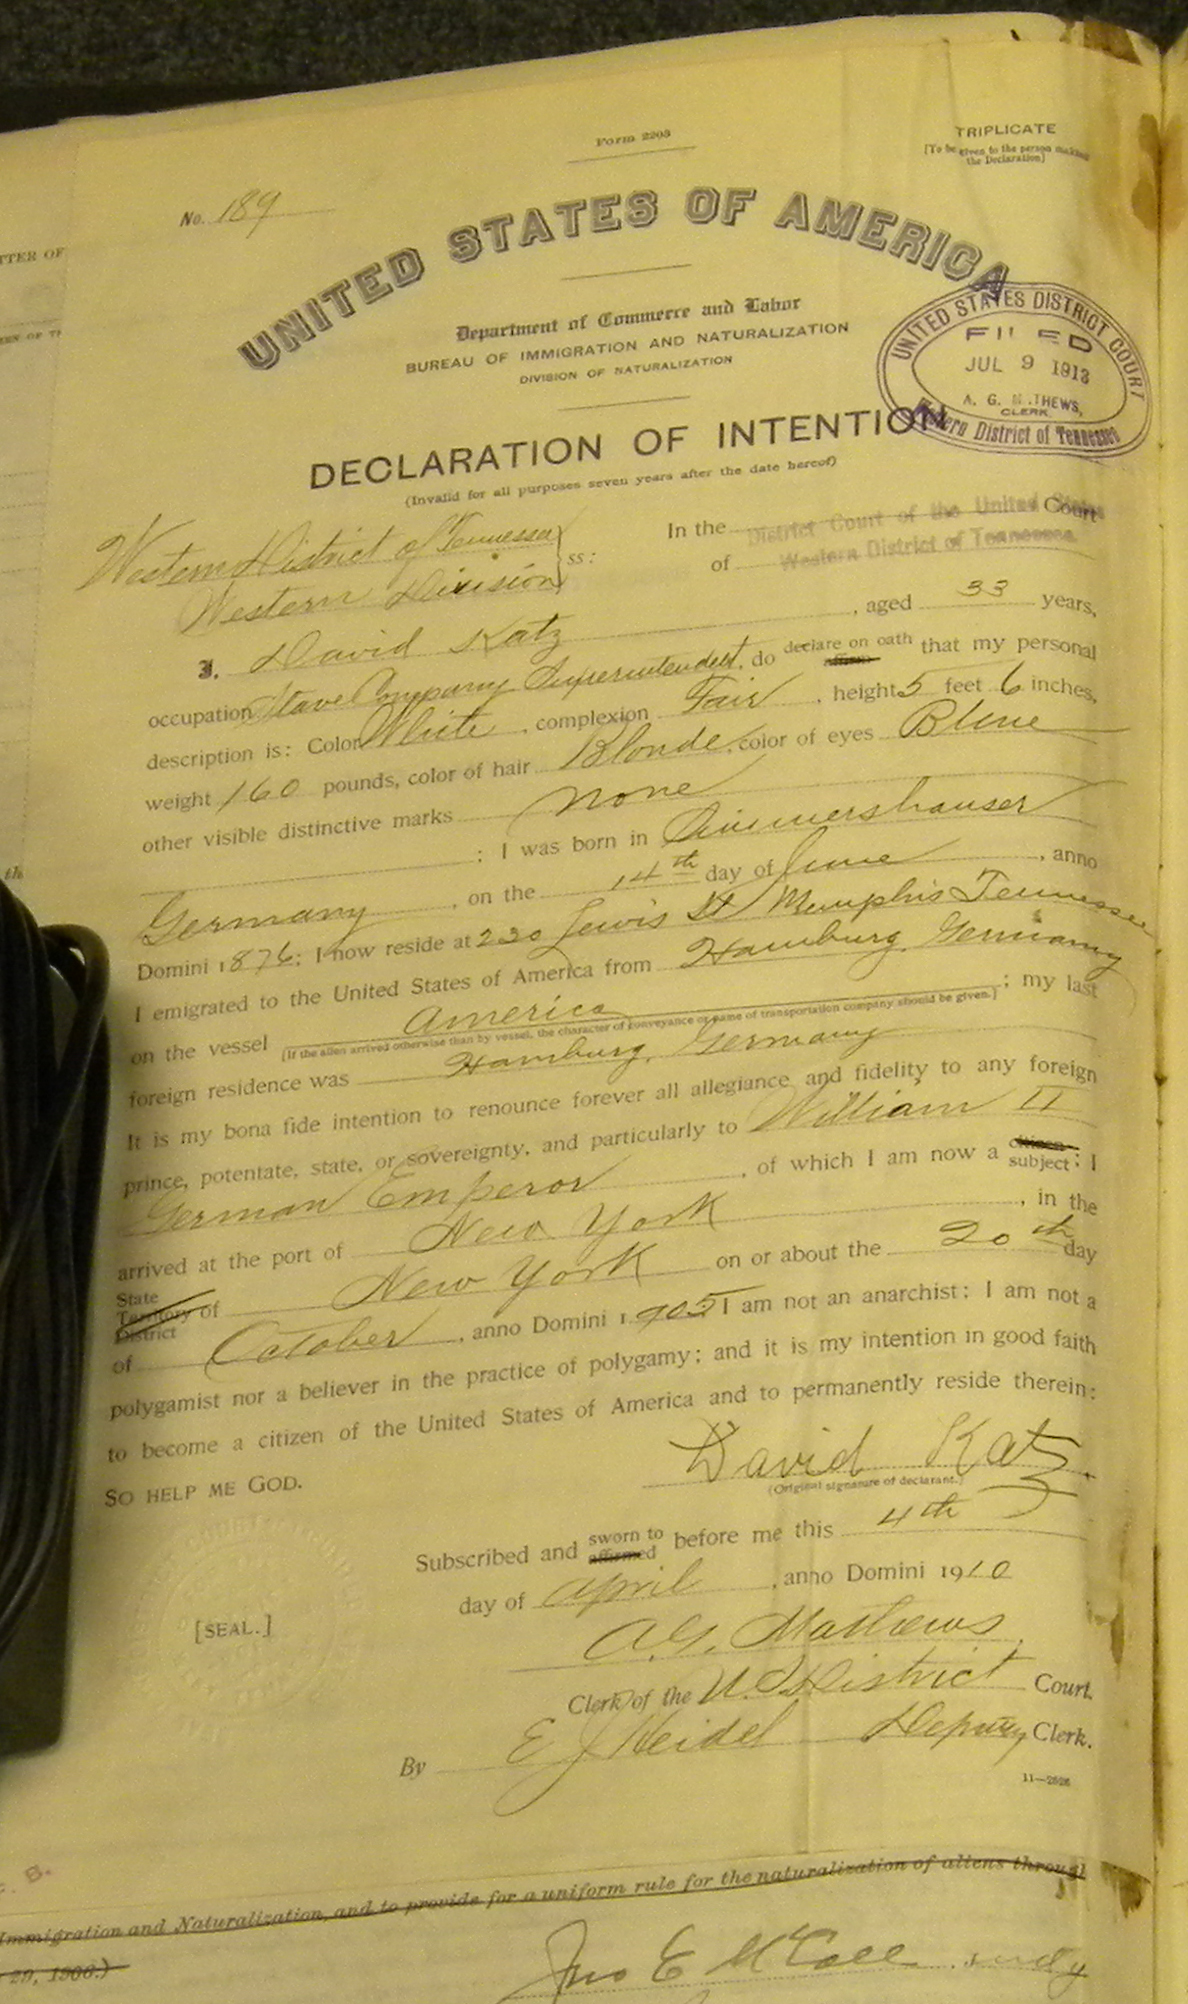 Form 2203
TRIPLICATE
[To be given to the person making the Declaration]
No. 189
TTER OF
UNITED STATES OF AMERICA
Department of Commerce and Labor
BUREAU OF IMMIGRATION AND NATURALIZATION
DIVISION OF NATURALIZATION
UNITED STATES DISTRICT COURT
FILED
JUL 9 1913
A. G. M THEWS,
CLERK
Western District of Tennessee
DECLARATION OF INTENTION
(Invalid for all purposes seven years after the date hereof)
Western District of Tennessee
Western Division
ss:
In the District Court of the United States Court
of Western District of Tennessee
I, David Katz, aged 33 years,
occupation Stave Company Superintendent, do declare on oath affirm that my personal
description is: Color White, complexion Fair, height 5 feet 6 inches,
weight 160 pounds, color of hair Blonde, color of eyes Blue
other visible distinctive marks none
; I was born in
Germany, on the 14th day of June, anno
Domini 1876; I now reside at 230 Lewis St Memphis Tennessee
I emigrated to the United States of America from Hamburg, Germany
on the vessel America; my last
(If the alien arrived otherwise than by vessel, the character of conveyance or name of transportation company should be given.)
foreign residence was Hamburg, Germany
It is my bona fide intention to renounce forever all allegiance and fidelity to any foreign
prince, potentate, state, or sovereignty, and particularly to William II
German Emperor, of which I am now a citizen subject; I
arrived at the port of New York, in the
State Territory District of New York on or about the 20th day
of October, anno Domini 1905; I am not an anarchist; I am not a
polygamist nor a believer in the practice of polygamy; and it is my intention in good faith
to become a citizen of the United States of America and to permanently reside therein:
SO HELP ME GOD.
David Katz.
(Original signature of declarant.)
Subscribed and sworn to affirmed before me this 4th
day of April, anno Domini 1910
[SEAL.]
A.G. Mathews
Clerk of the U.S. District Court.
By E J Heidel Deputy Clerk.
11—2626
Immigration and Naturalization, and to provide for a uniform rule for the naturalization of aliens through
29, 1906.)
Jno E McCall